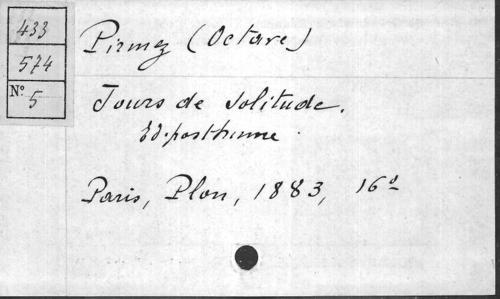 433
574
Nº 5
Pirmez (Octave)
Jours de Solitude.
Ed. posthume.
Paris, Plon, 1883, 16º